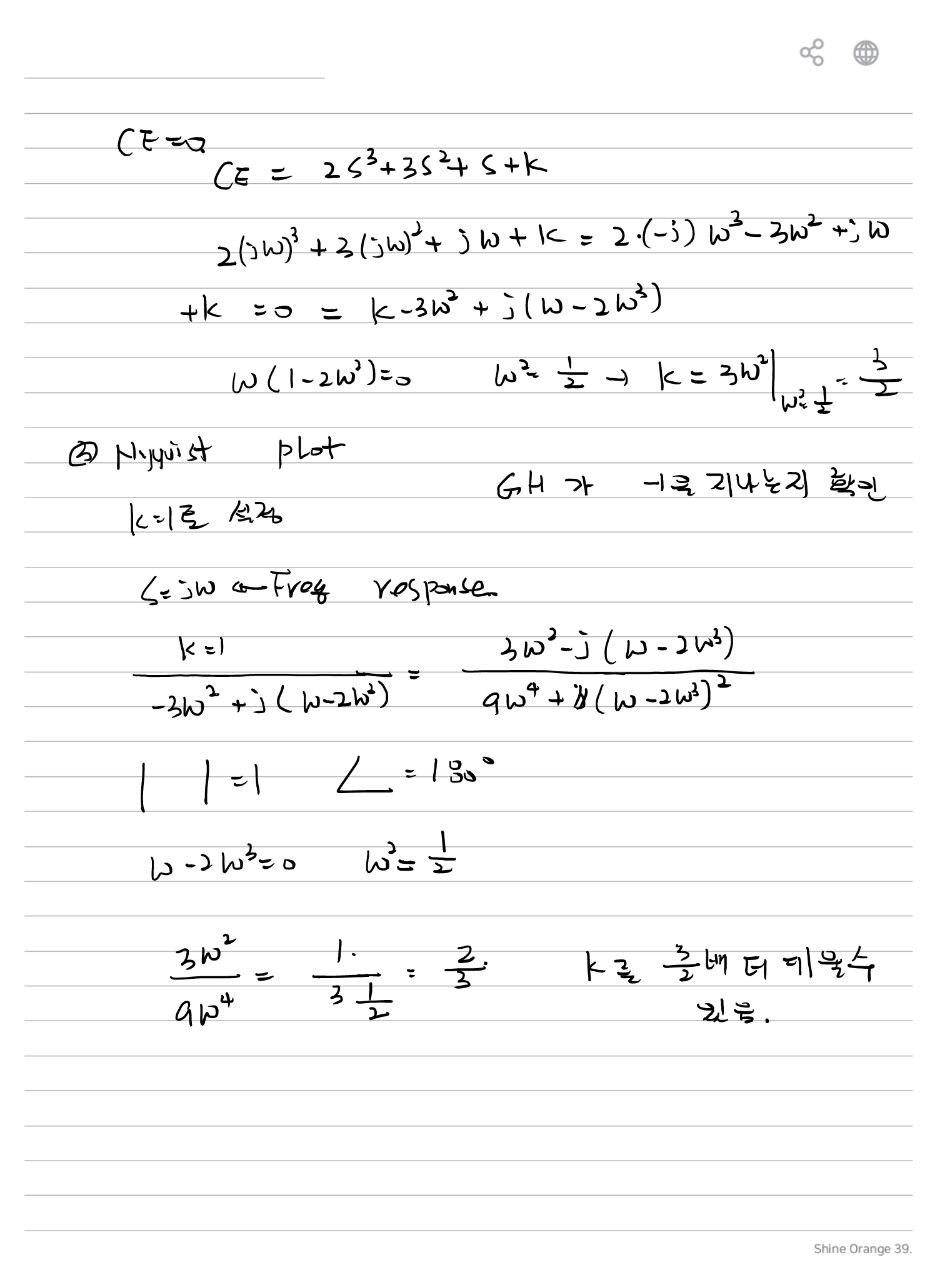 CE=0
CE = 2s³+3s²+s+k
2(jω)³+3(jω)²+jω+k = 2·(-j)ω³-3ω²+jω
+k =0 = k-3ω²+j(ω-2ω³)
ω(1-2ω²)=0 ω²=1/2 → k=3ω²|ω²=1/2 = 3/2
③ Nyquist plot
GH가 -1을 지나는지 확인
k=1로 설정
s=jω ← Freq response
k=1/(-3ω²+j(ω-2ω³)) = (3ω²-j(ω-2ω³))/(9ω⁴+(ω-2ω³)²)
| |=1 ∠=180°
ω-2ω³=0 ω²=1/2
3ω²/9ω⁴ = 1/(3 1/2) = 2/3 k를 3/2배 더 키울수
있음.
Shine Orange 39.